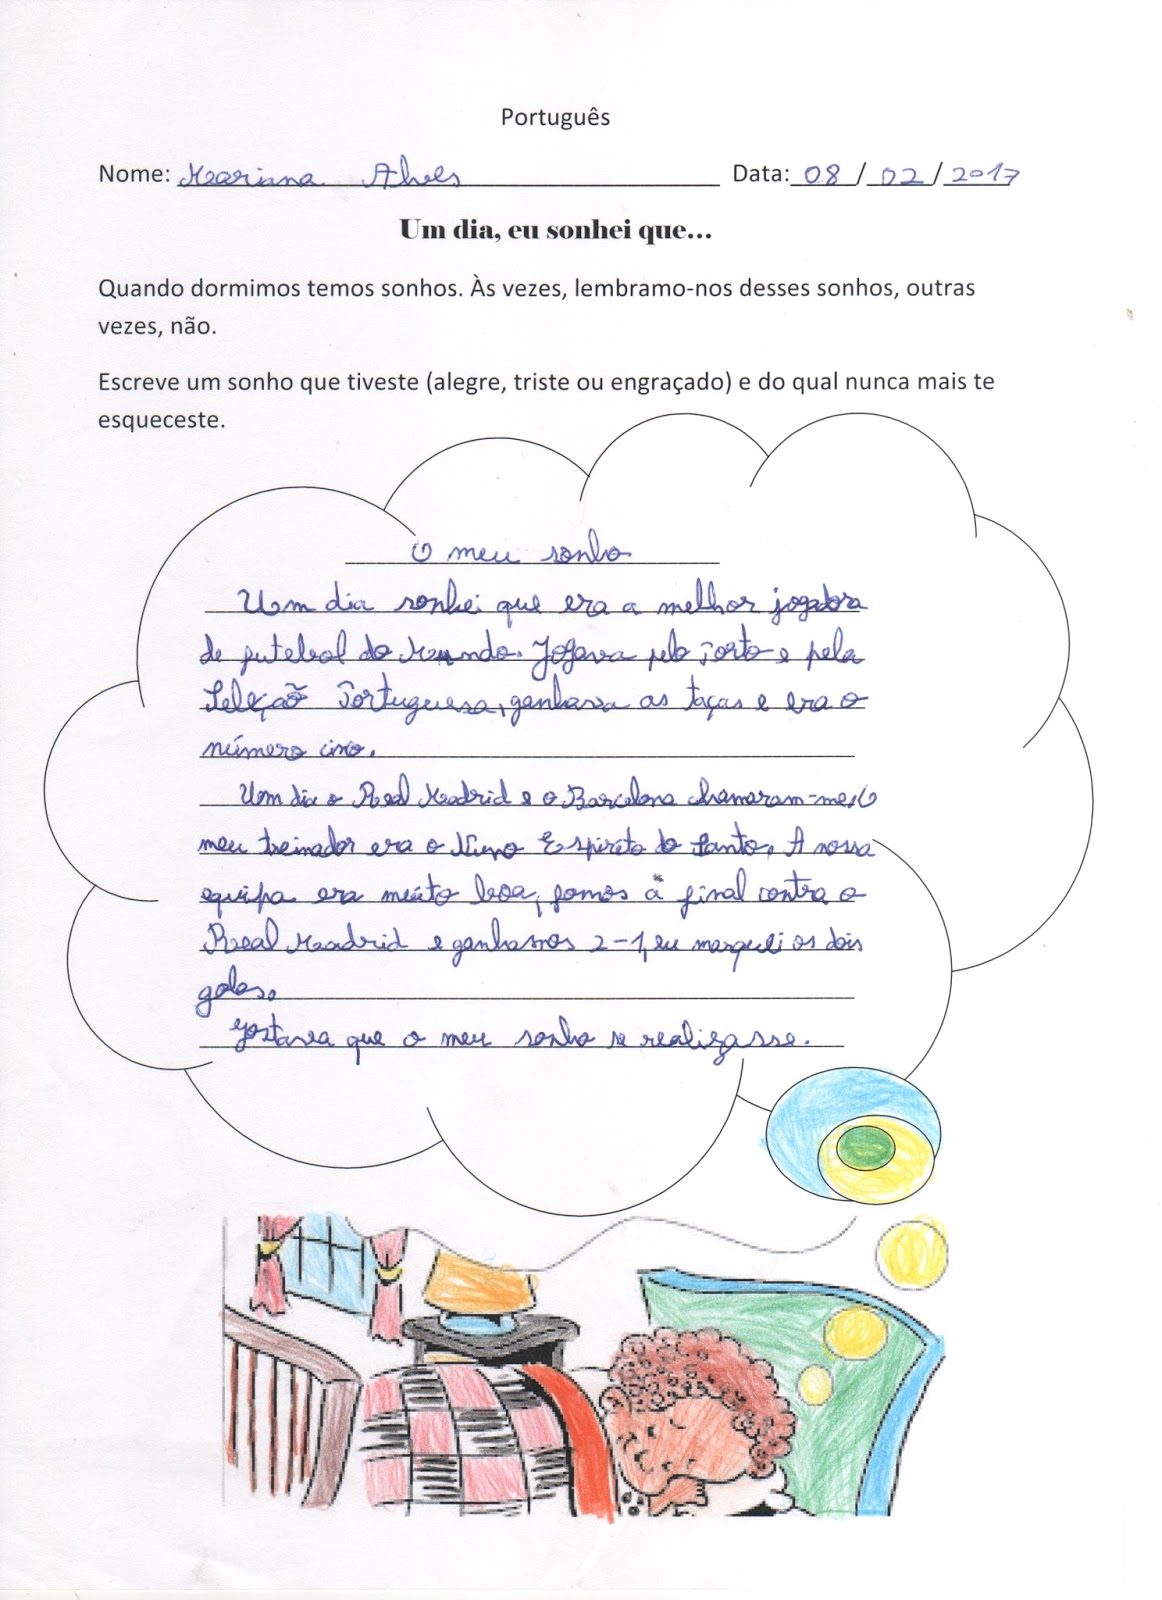 Português
Nome: Mariana Alves Data: 08/02/2017
Um dia, eu sonhei que...
Quando dormimos temos sonhos. Às vezes, lembramo-nos desses sonhos, outras
vezes, não.
Escreve um sonho que tiveste (alegre, triste ou engraçado) e do qual nunca mais te
esqueceste.
O meu sonho
Um dia sonhei que era a melhor jogadora
de futebol do Mundo. Jogava pelo Porto e pela
Seleção Portuguesa, ganhava as taças e era o
número cinco.
Um dia o Real Madrid e o Barcelona chamaram-me. O
meu treinador era o Nuno Espírito do Santo. A nossa
equipa era muito boa, fomos à final contra o
Real Madrid e ganhamos 2-1, eu marquei os dois
golos.
Gostava que o meu sonho se realizasse.